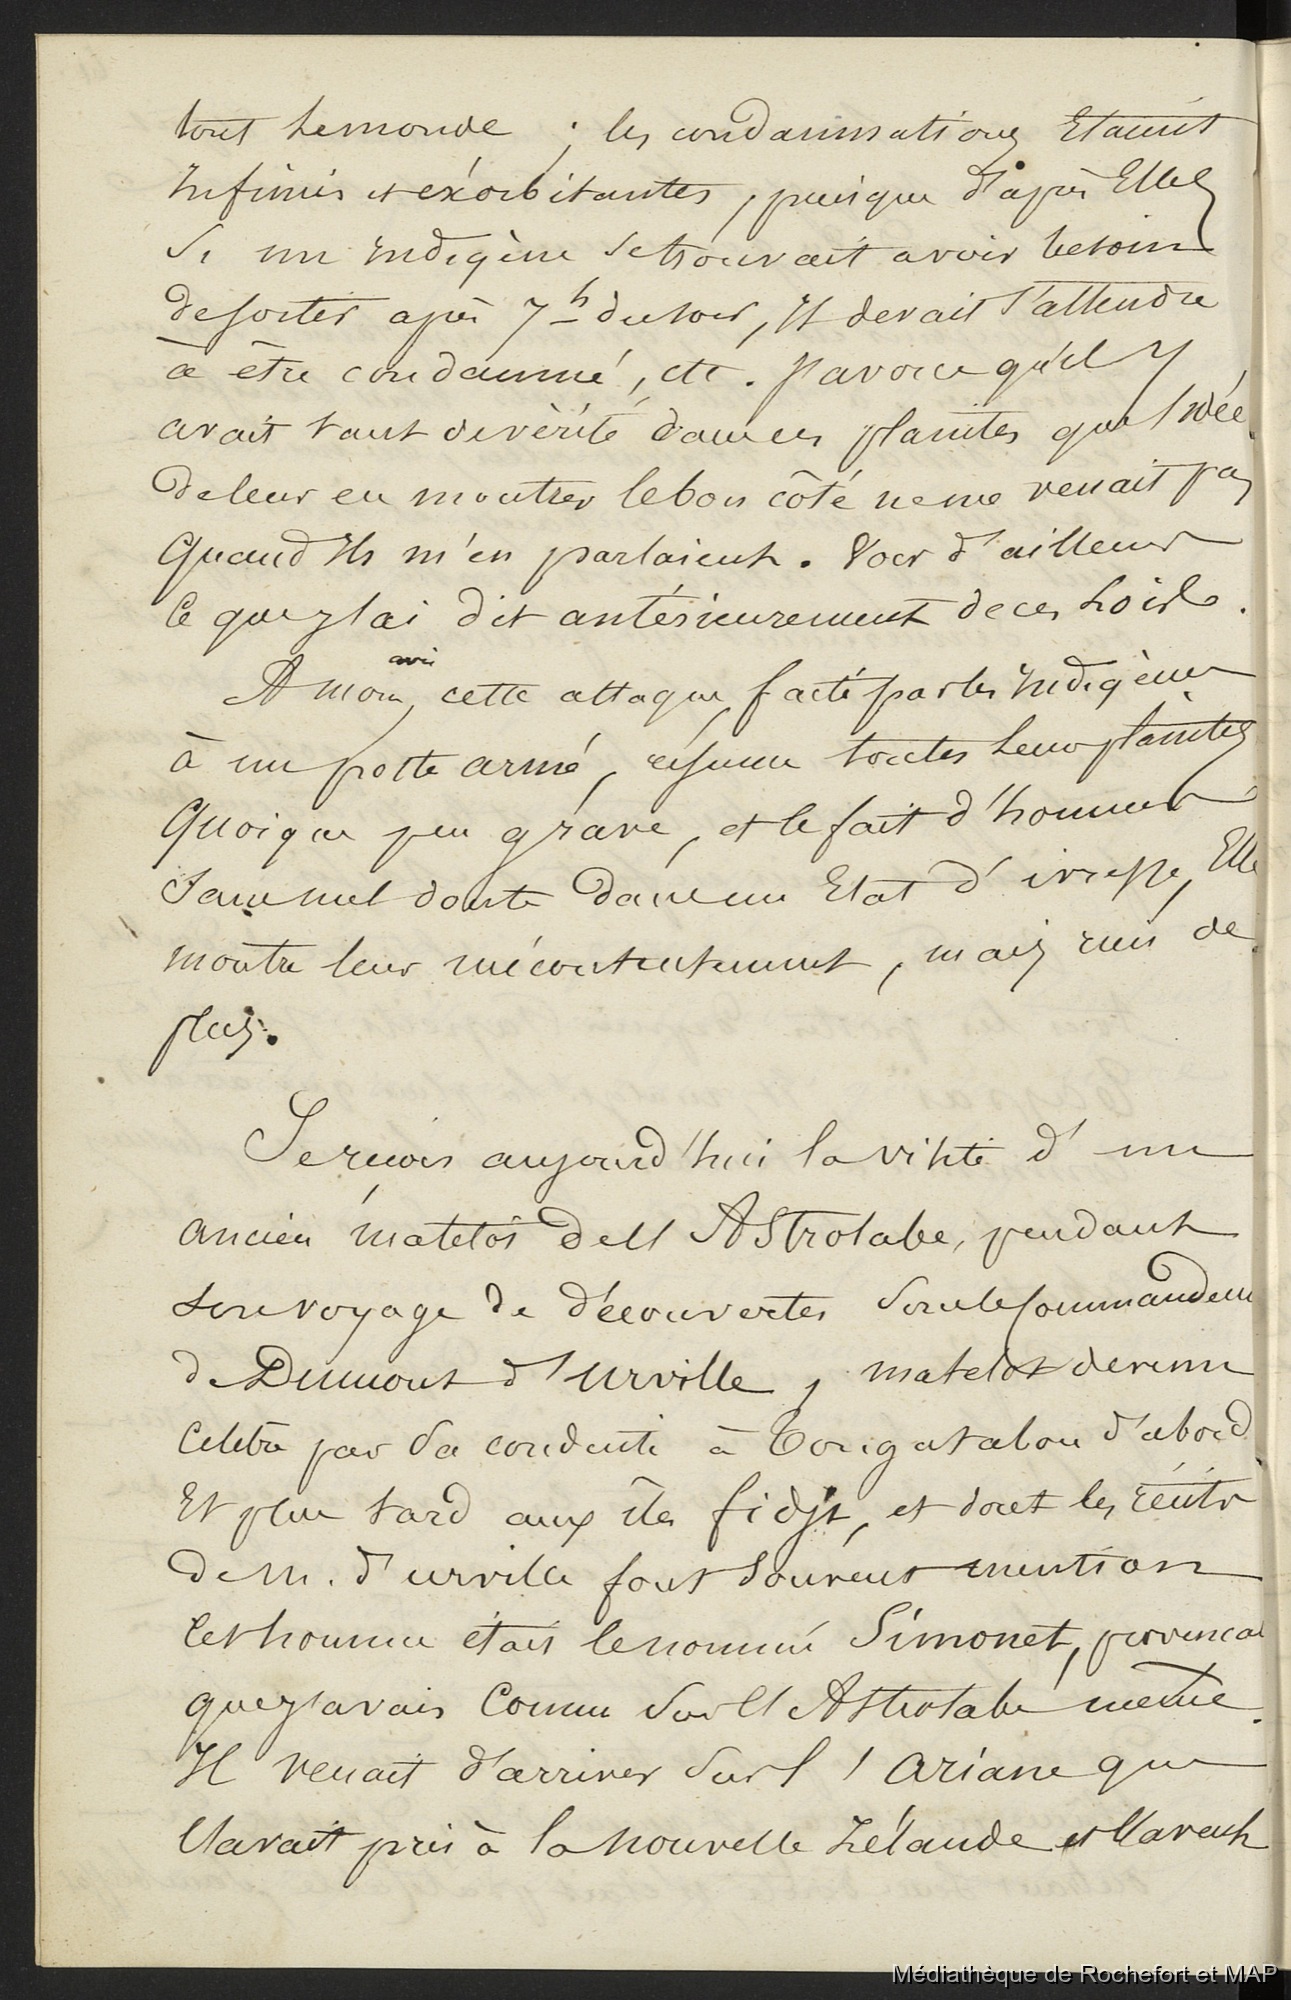 tout le monde ; les condamnations Etaient
Infinies et éxorbitantes, puisque d'après Elles
Si un Indigène se trouvait avoir besoin
de sortir après 7h du soir, Il devait s'attendre
à être condamné, etc. J'avoue qu'il y
avait tant de vérité dans ces plaintes que l'Idée
de leur en montrer le bon côté ne me venait pas
Quand Ils m'en parlaient. Voir d'ailleurs
Ce que j'ai dit antérieurement de ces Lois.
A mon avis, cette attaque, faite par les Indigènes
à un poste armé, résume toutes leurs plaintes
Quoique peu grave, et le fait d'hommes
Sans nul doute dans un Etat d'ivresse, Elle
montre leur mécontentement, mais rien de
plus.
Je reçois aujourd'hui la visite d'un
ancien matelot de l'Astrolabe, pendant
son voyage de découvertes sous le Commandement
de Dumont d'Urville, matelot devenu
Celèbre par sa conduite à Tongatabou d'abord
Et plus tard aux îles fidji, et dont les récits
de M. d'urville font souvent mention
Cet homme était le nommé Simonet, provençal
que j'avais Connu sur l'Astrolabe même.
Il venait d'arriver sur l'Ariane qui
l'avait pris à la nouvelle Zélande et l'avait
Médiathèque de Rochefort et MAP